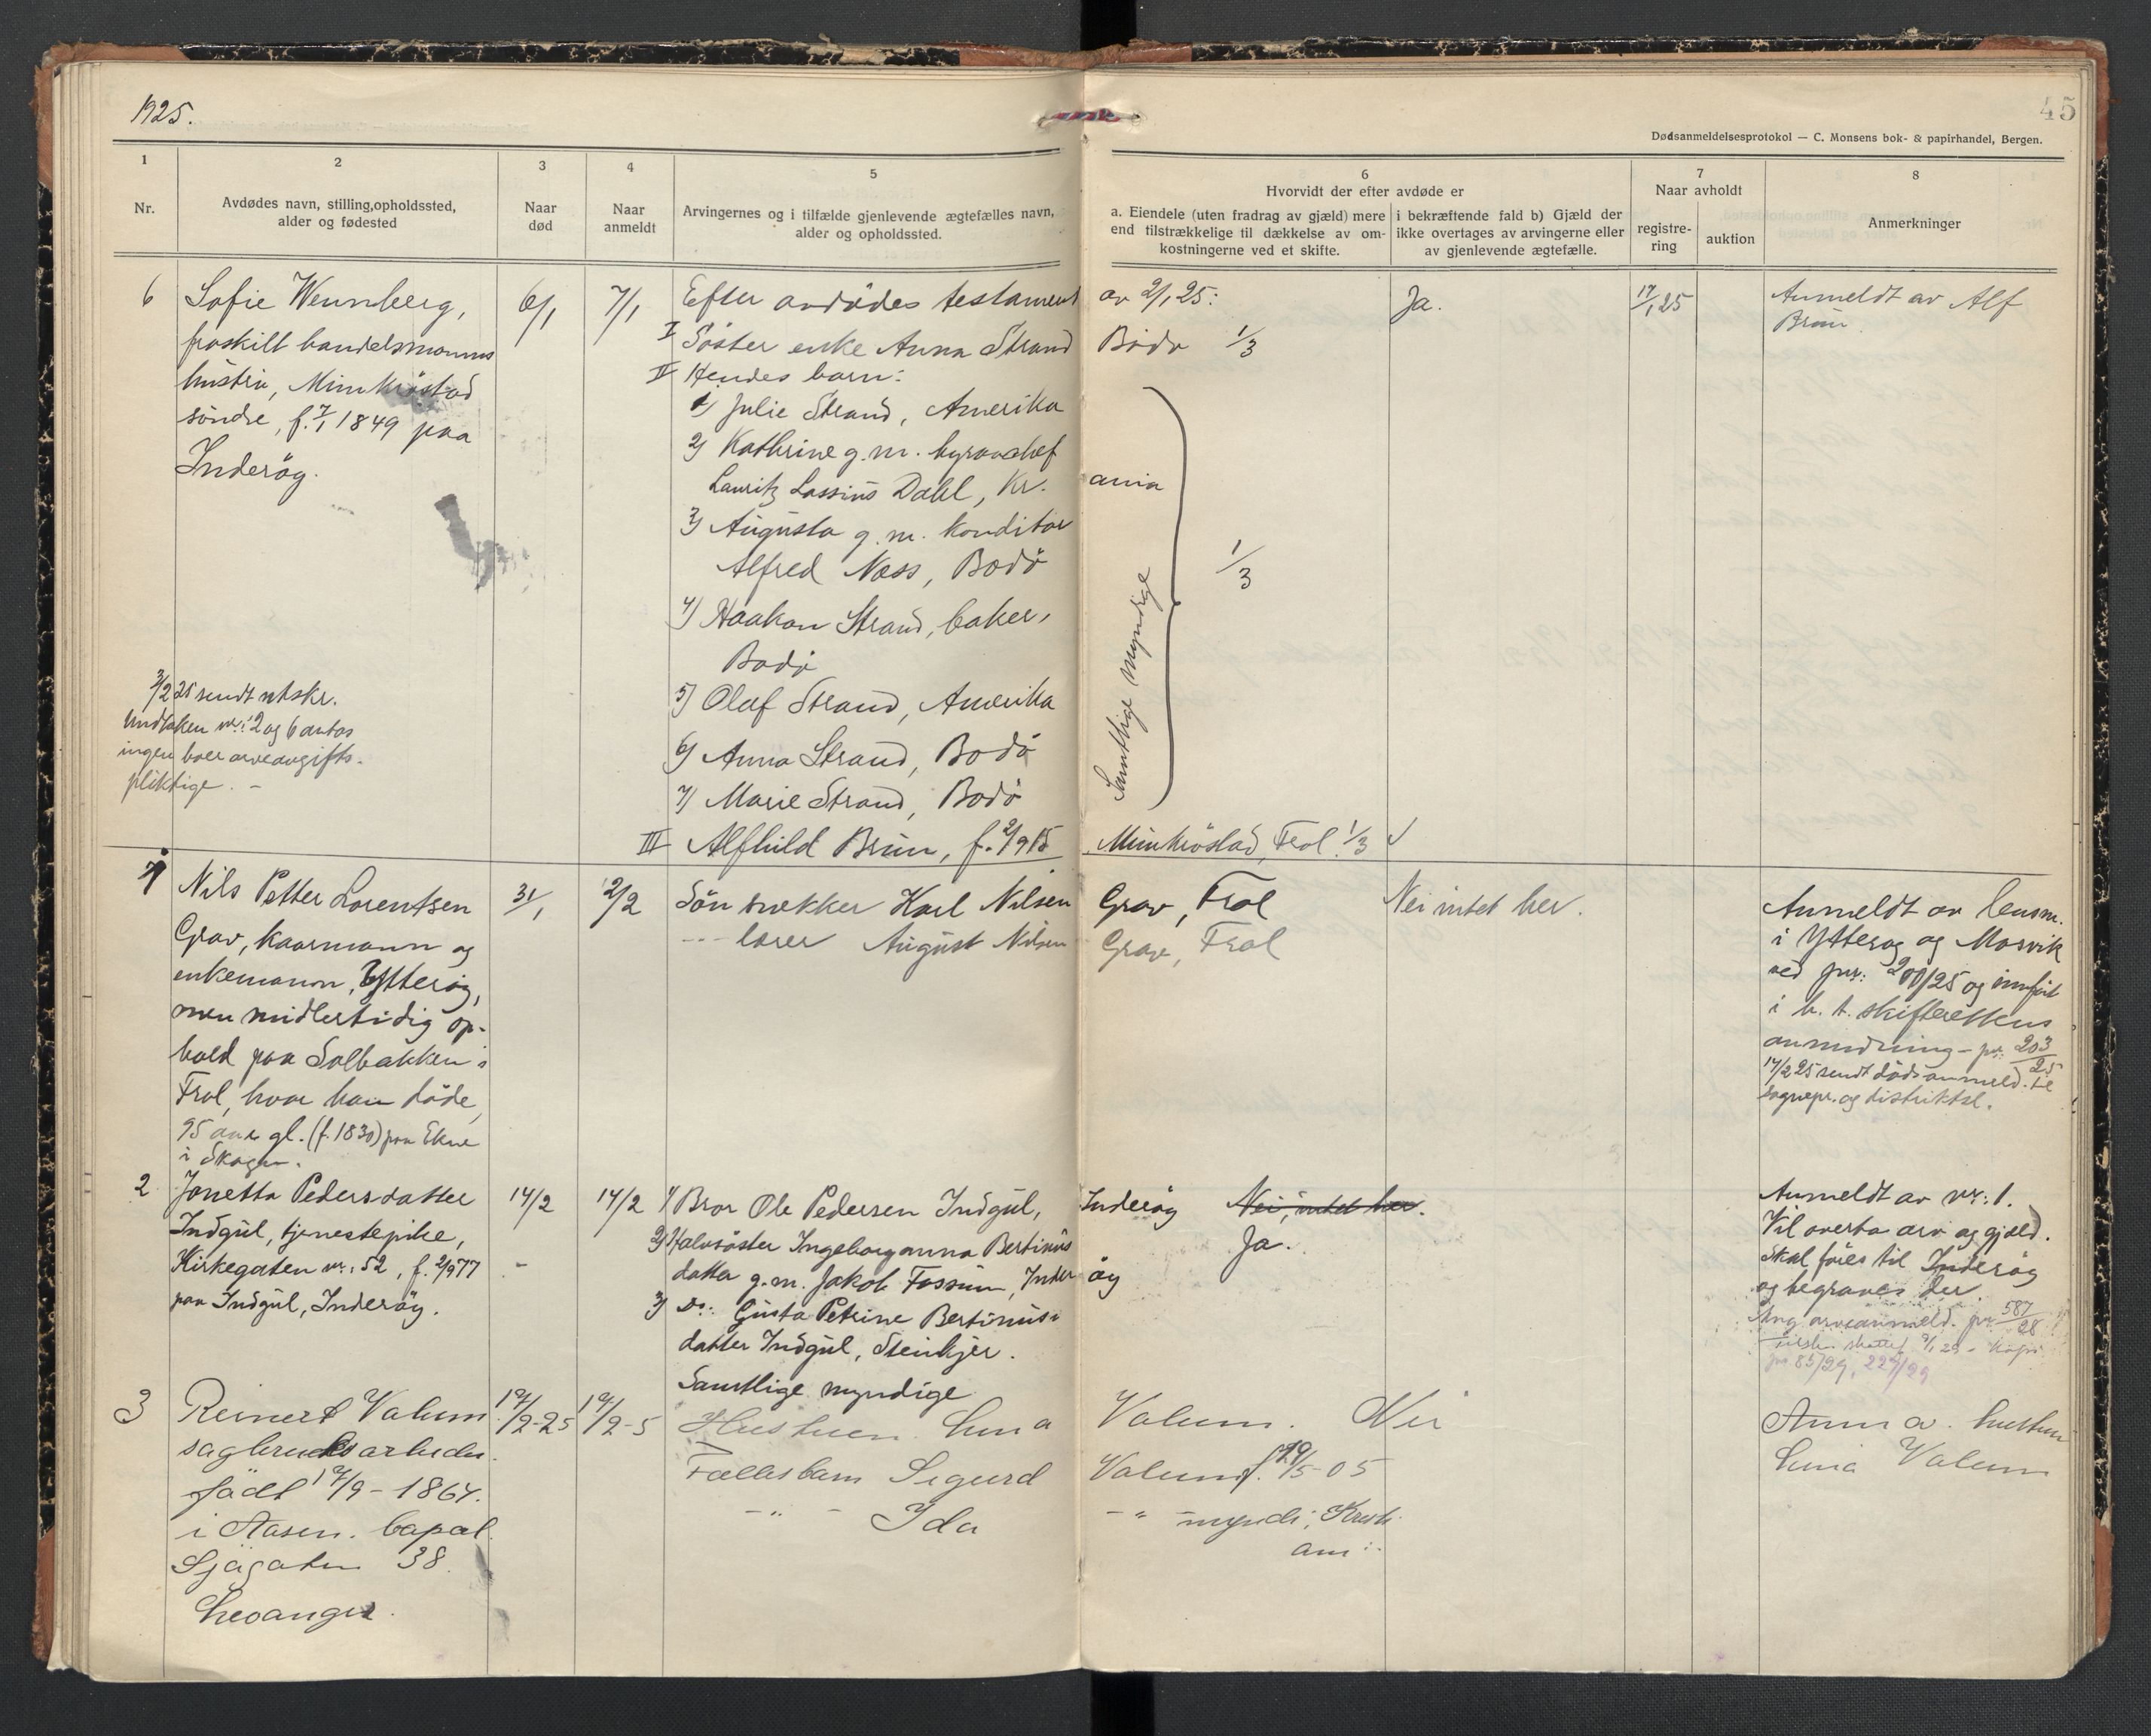 1925.
45
Dødsanmeldelsesprotokol — C. Monsens bok- & papirhandel, Bergen.
1
2
3
4
5
6
7
8
Nr.
Avdødes navn, stilling, opholdssted,
alder og fødested
Naar
død
Naar
anmeldt
Arvingernes og i tilfælde gjenlevende ægtefælles navn,
alder og opholdssted.
Hvorvidt der efter avdøde er
a. Eiendele (uten fradrag av gjæld) mere
end tilstrækkelige til dækkelse av om-
kostningerne ved et skifte.
i bekræftende fald b) Gjæld der
ikke overtages av arvingerne eller
av gjenlevende ægtefælle.
Naar avholdt
registre-
ring
auktion
Anmerkninger
6
Sofie Wennberg,
fraskilt handelsmanns
hustru, Munkrøstad
søndre, f. 7/1 1849 paa
Inderøy.
6/1
7/1
Efter avdødes testament av 2/1 25:
I Søster enke Anna Strand Bodø 1/3
II Hendes barn:
1) Julie Strand, Amerika
2) Kathrine g. m. byraachef
Lauritz Lassius Dahl, Kr. ania
3) Augusta g. m. konditor
Alfred Næss, Bodø
4) Haakon Strand, baker,
Bodø
5) Olaf Strand, Amerika
6) Anna Strand, Bodø
7) Marie Strand, Bodø
Samtlige myndige
1/3
III Alfhild Brun, f. 2/9 15 Munkrøstad, Frol. 1/3
Ja.
17/1 25
Anmeldt av Alf
Brun.
3/2 25 sendt utskr.
Undtaken nr: 2 og 6 antas
ingen boer arveavgifts-
pliktige. -
1
Nils Petter Lorentsen
Grav, kaarmann og
enkemann, Ytterøy,
men midlertidig op-
hold paa Solbakken i
Frol, hvor han døde,
95 aar gl. (f. 1830) paa Ekne
i Skogn.
31/1
2/2
Søn snekker Karl Nilsen Grav, Frol
--- lærer August Nilsen Grav, Frol
Nei intet her.
Anmeldt av lensm.
i Ytterøy og Mosvik
ved jnr: 200/25 og innført
i h. t. skifterettens
anmodning - jnr: 203/25
17/2 25 sendt dødsanmeld. til
sognepr. og distriktsl.
2
Jonetta Pedersdatter
Indgul, tjenestepike,
Kirkegaten nr: 52, f. 2/9 77
paa Indgul, Inderøy.
14/2
14/2
1) Bror Ole Pedersen Indgul, Inderøy
2) Halvsøster Ingeborganna Bertinus
datter g. m. Jakob Fossum, Inder øy
3) Do: Gusta Petrine Bertinus-
datter Indgul, Steinkjer.
Samtlige myndige
Nei, intet her.
Ja.
Anmeldt av nr: 1.
Vil overta arv og gjæld.
Skal føres til Inderøy
og begraves der.
Ang. arveanmeld. jnr 587/28
85/29, 229/29
3
Reinert Valum
sagbruksarbeider.
født 17/9 - 1864.
i Aasen. bopæl.
Sjøgaten 38.
Levanger.
19/2-25
19/2-5
Hustruen Lina Valum.
Fællesbarn Sigurd Valum f. 19/5-05
-"- Ida -"- myndi; Kristi-
ani..
Nei
Anm. av. hustru
Lina Valum